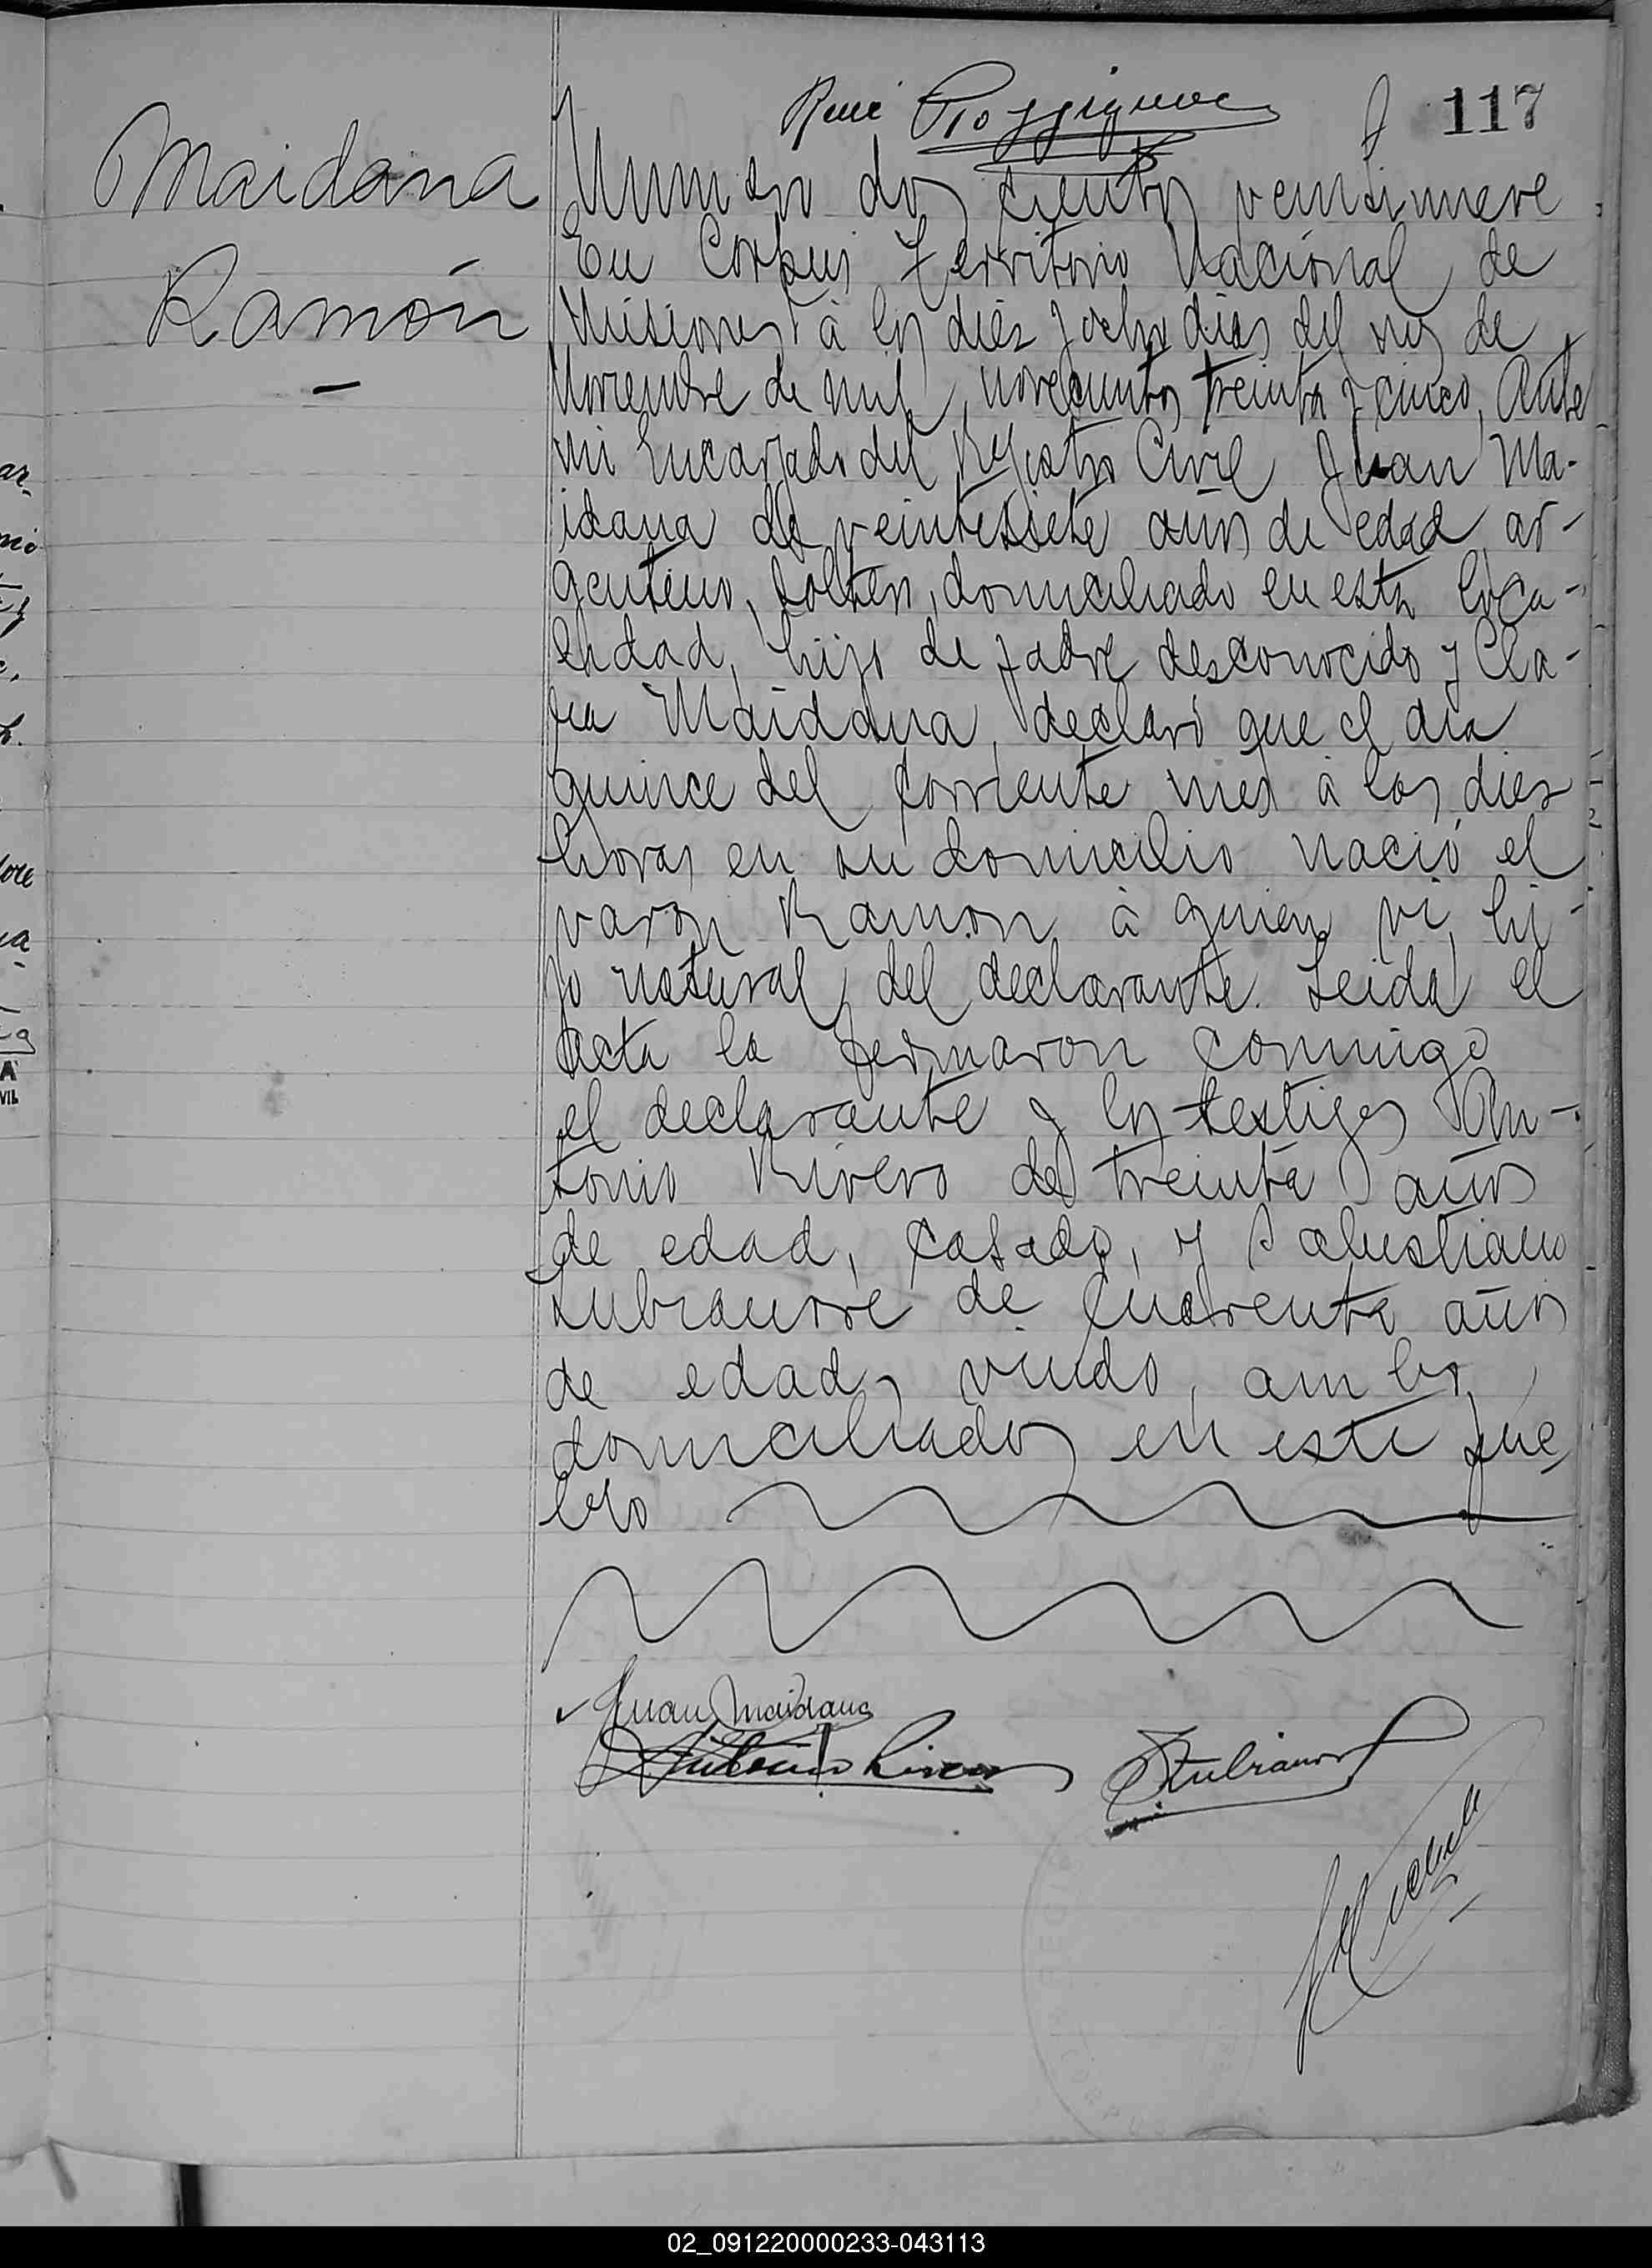 117
Maidana
Ramón
Numero dos cientos veintinueve
En Corpus Territorio Nacional de
Misiones à los diéz y ocho dias del mes de
Noviembre de mil novecientos treinta y cinco, Ante
mi Encargado del Registro Civil Juan Ma-
idana de veintesiete años de edad, ar-
gentino, soltero, domiciliado en esta loca-
lidad, hijo de padre desconocido y Cla-
ra Maidana, declaró que el dia
quince del corriente mes à las diez
horas en su domicilio nació el
varon Ramon à quien vi, hi-
jo natural del declarante. Leida el
acta la fermaron conmigo
el declarante y los testigos An-
tonio Rivero de treinta años
de edad, casado, y Salustiano
Lubranore de cuarenta años
de edad, viudo, ambos
domiciliados en este pue
blo
Juan Maidana
Antonio Rivero
02_091220000233-043113